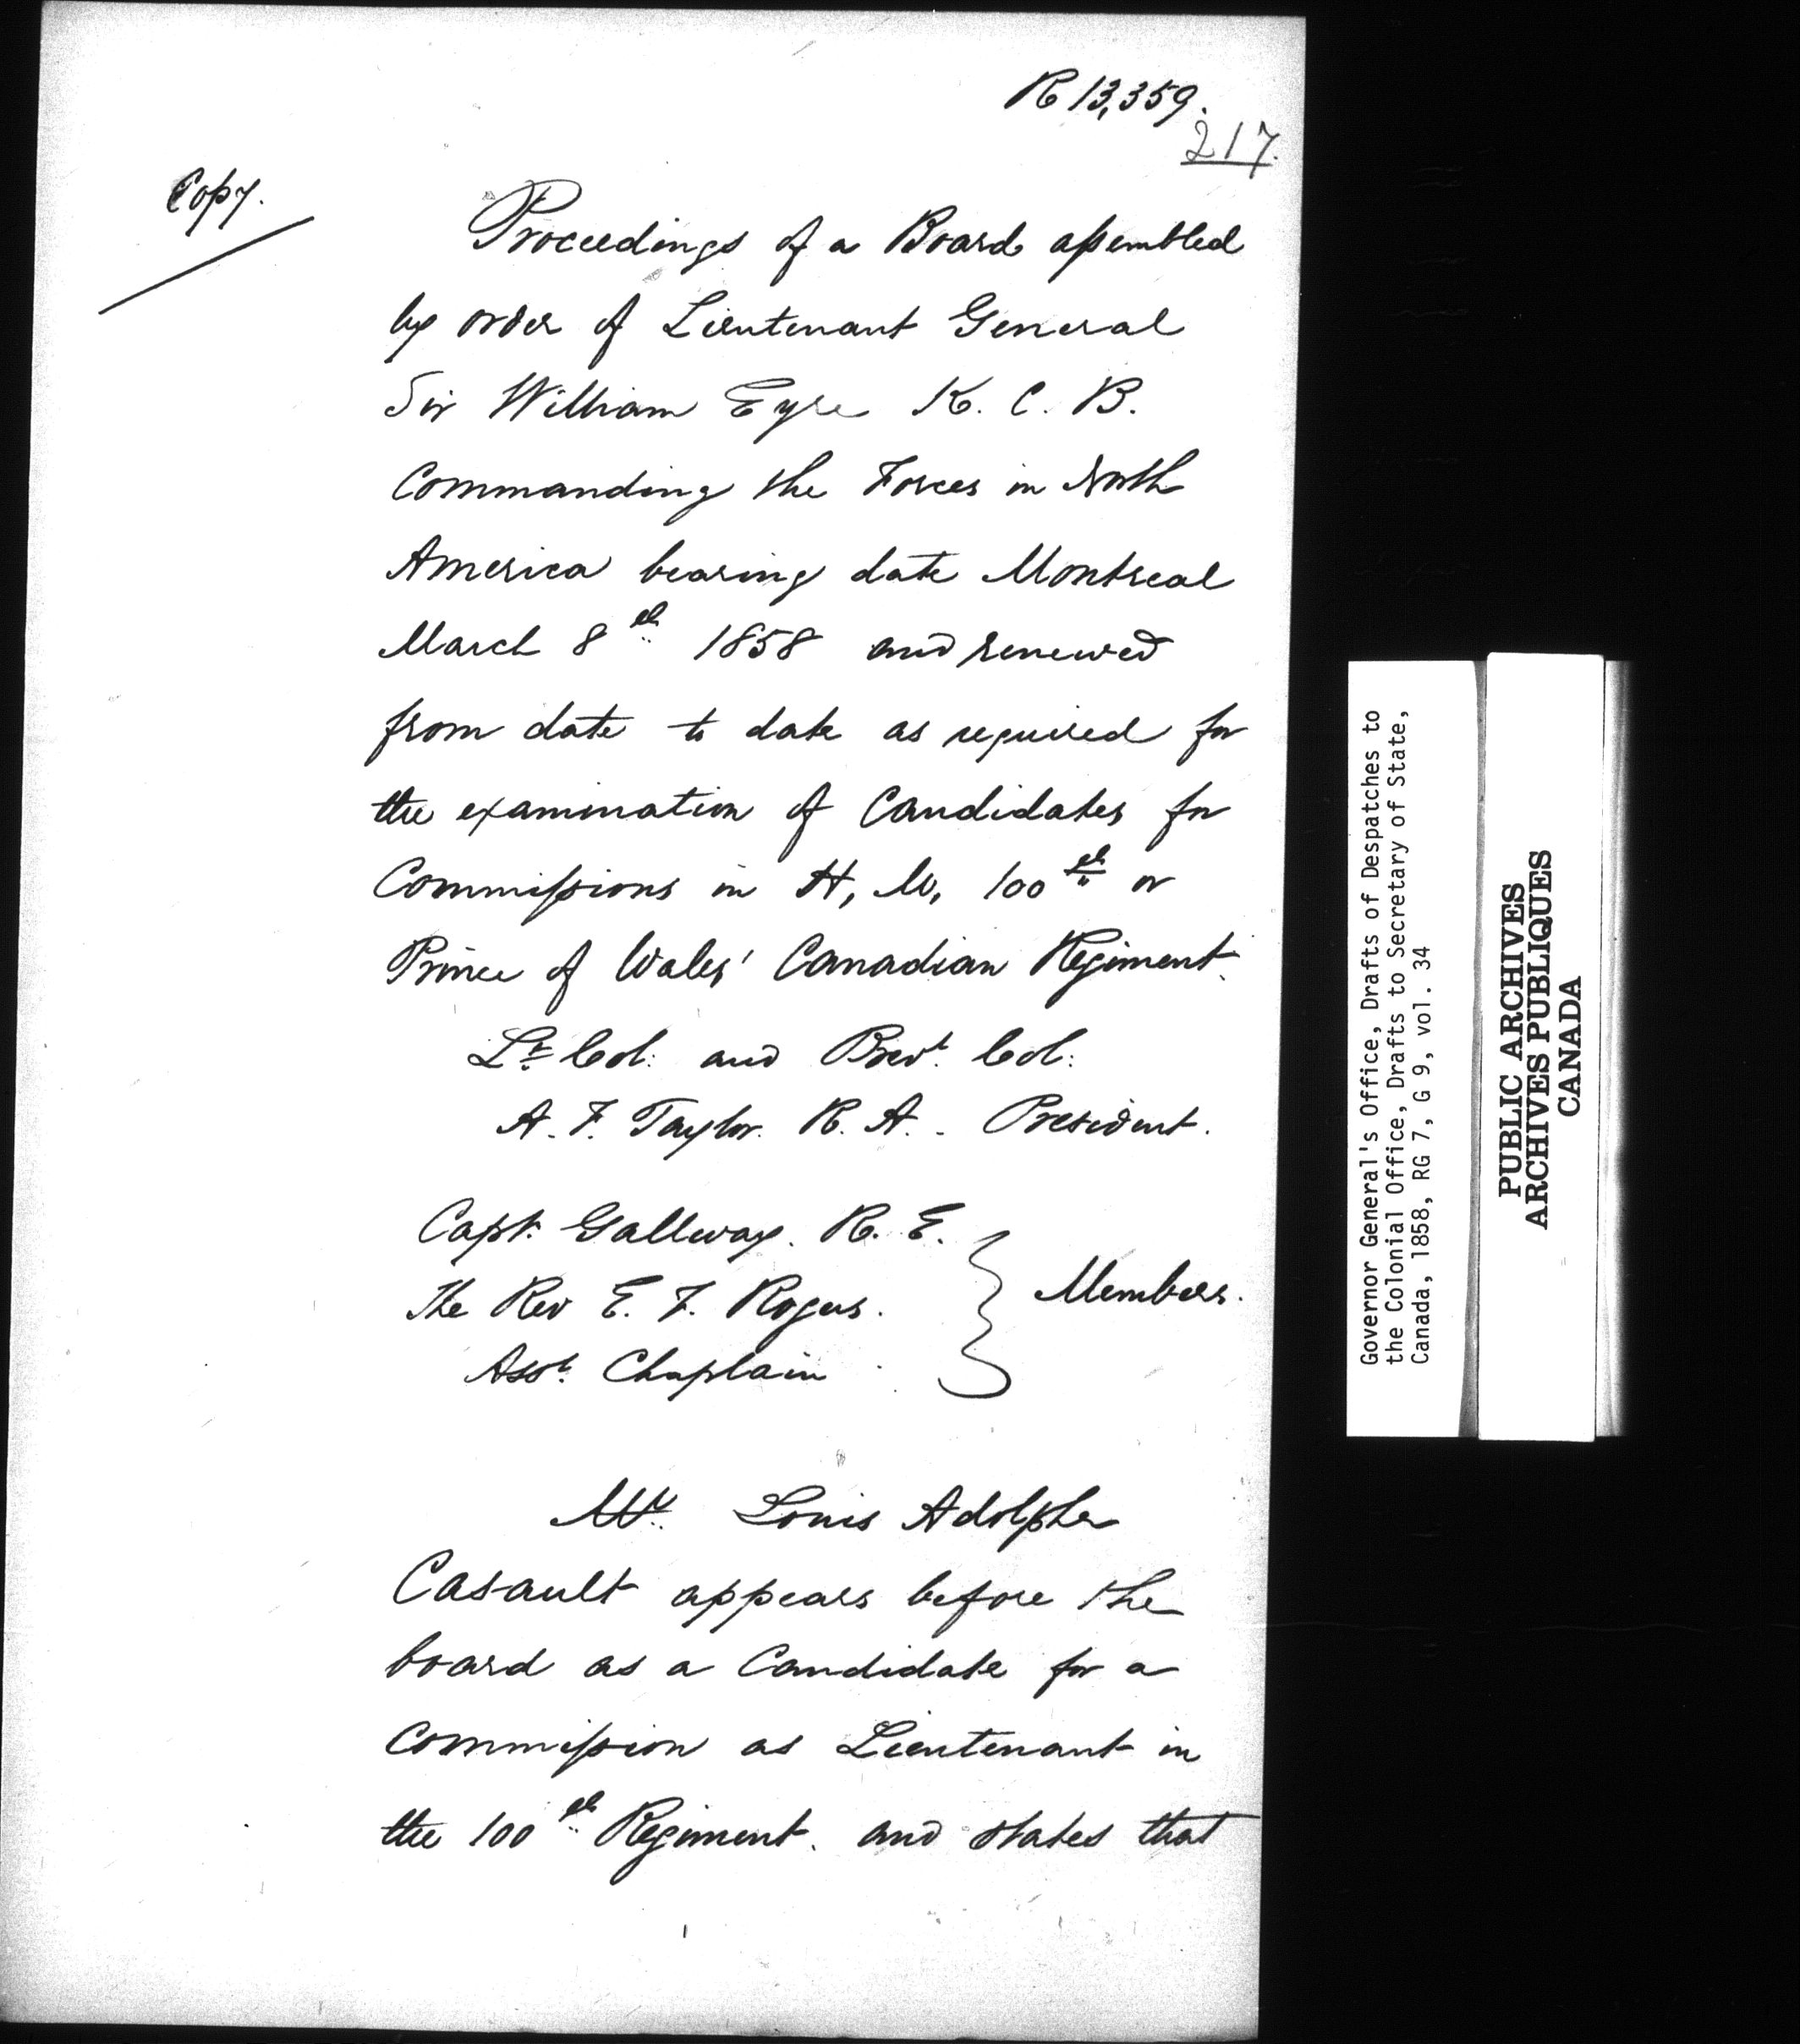 R 13,359.
217.
Copy.
Proceedings of a Board assembled
by order of Lieutenant General
Sir William Eyre K. C. B.
Commanding the Forces in North
America bearing date Montreal
March 8th 1858 and renewed
from date to date as required for
the examination of Candidates for
Commissions in H, M, 100th or
Prince of Wales' Canadian Regiment.
Lt Col: and Brevt. Col:
A. F. Taylor. R. A. - President.
Capt. Gallway. R. E.
The Rev E. F. Rogers.
Asst. Chaplain
Members.
Mr. Louis Adolphe
Casault appears before the
board as a Candidate for a
Commission as Lieutenant in
the 100th Regiment. and states that
Governor General's Office, Drafts of Despatches to
the Colonial Office, Drafts to Secretary of State,
Canada, 1858, RG 7, G 9, vol. 34
PUBLIC ARCHIVES
ARCHIVES PUBLIQUES
CANADA